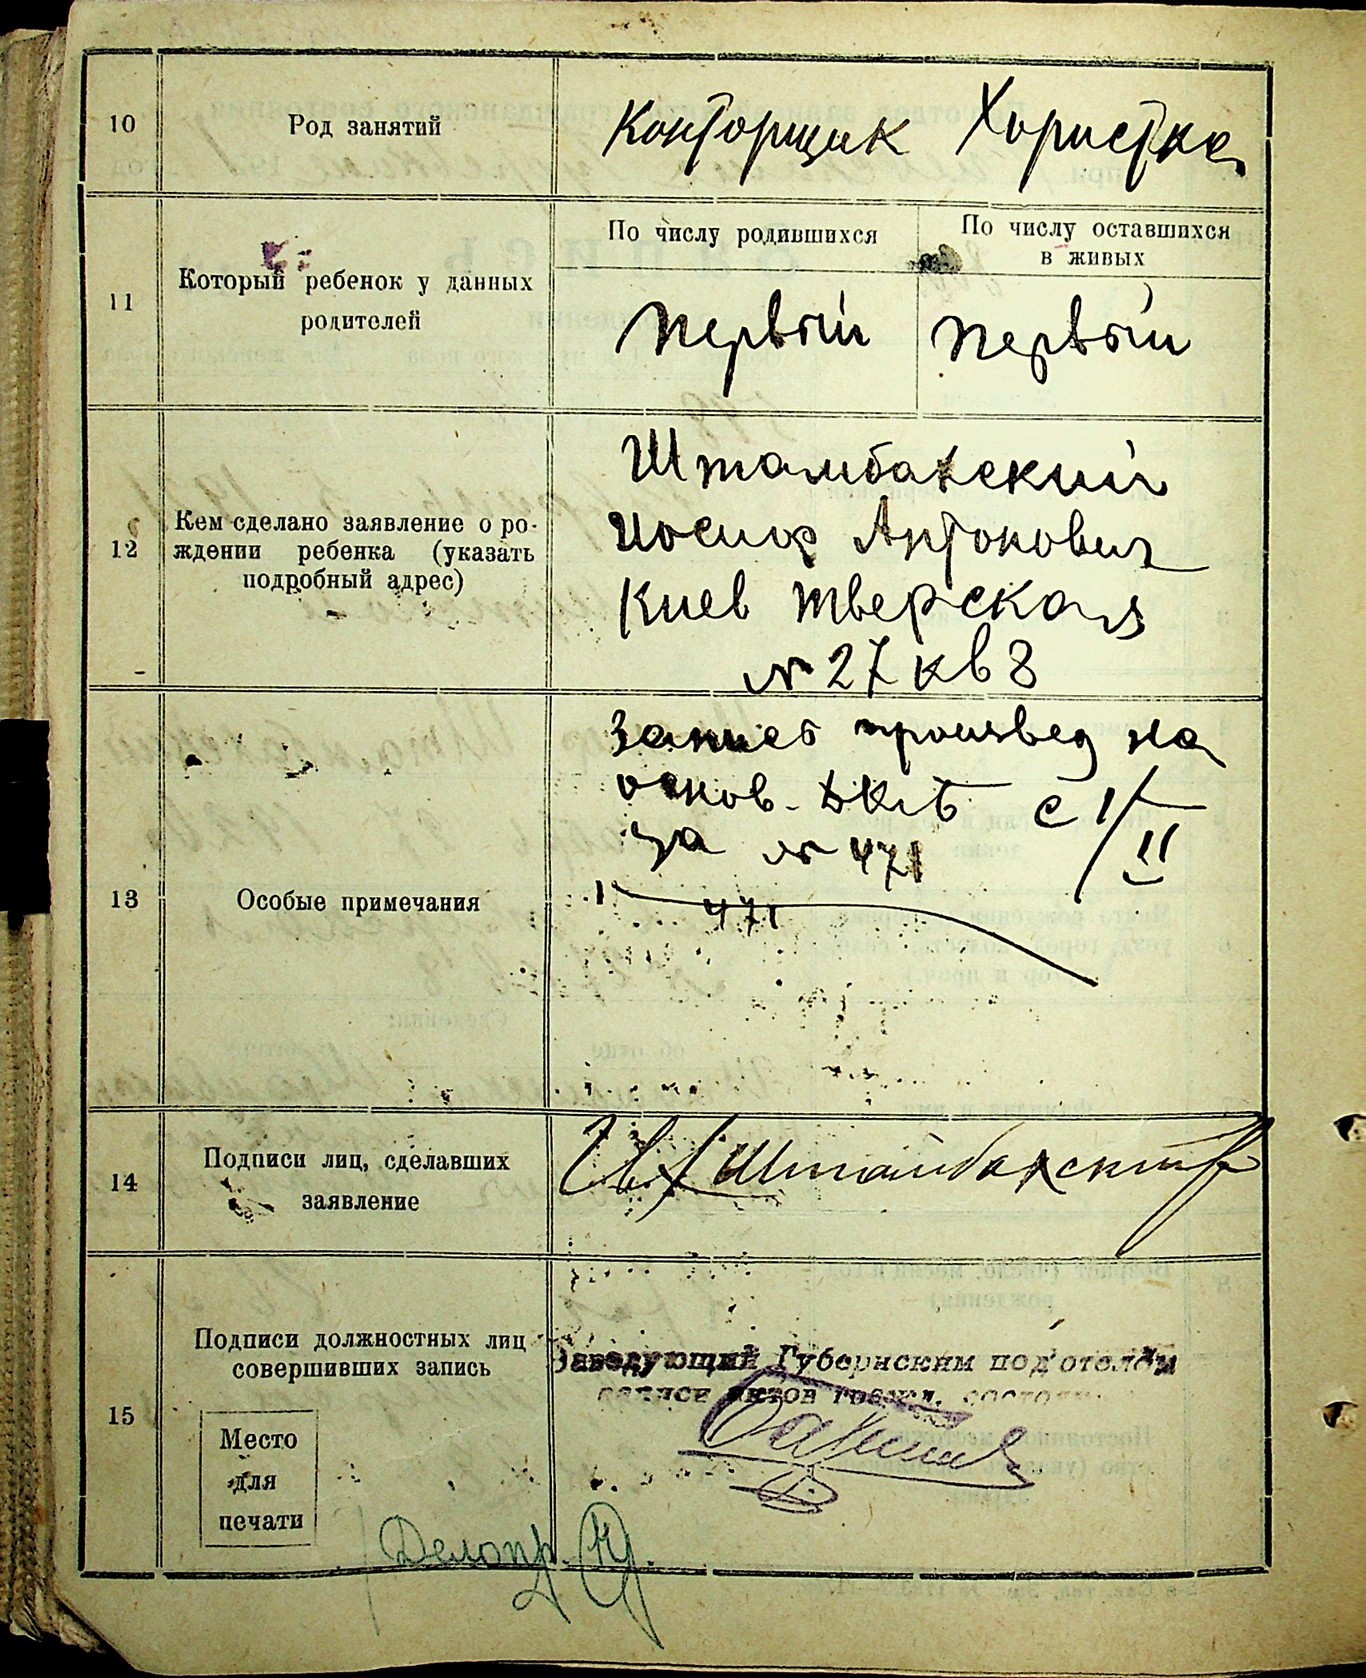 10
Род занятий
Конторщик Хористка
11
Который ребенок у данных
родителей
По числу родившихся
По числу оставшихся
в живых
Первый
Первый
12
Кем сделано заявление о ро-
ждении ребенка (указать
подробный адрес)
Штамбахский
Иосиф Антонович
Киев Тверская
№ 27 кв 8
13
Особые примечания
Запись произвед на
основ. с 1/II
за № 471
471
14
Подписи лиц, сделавших
заявление
Штамбахский
15
Подписи должностных лиц
совершивших запись
Место
для
печати
Заведующий Губернским под'отделом
записи актов гражд. состоян
Делопр.